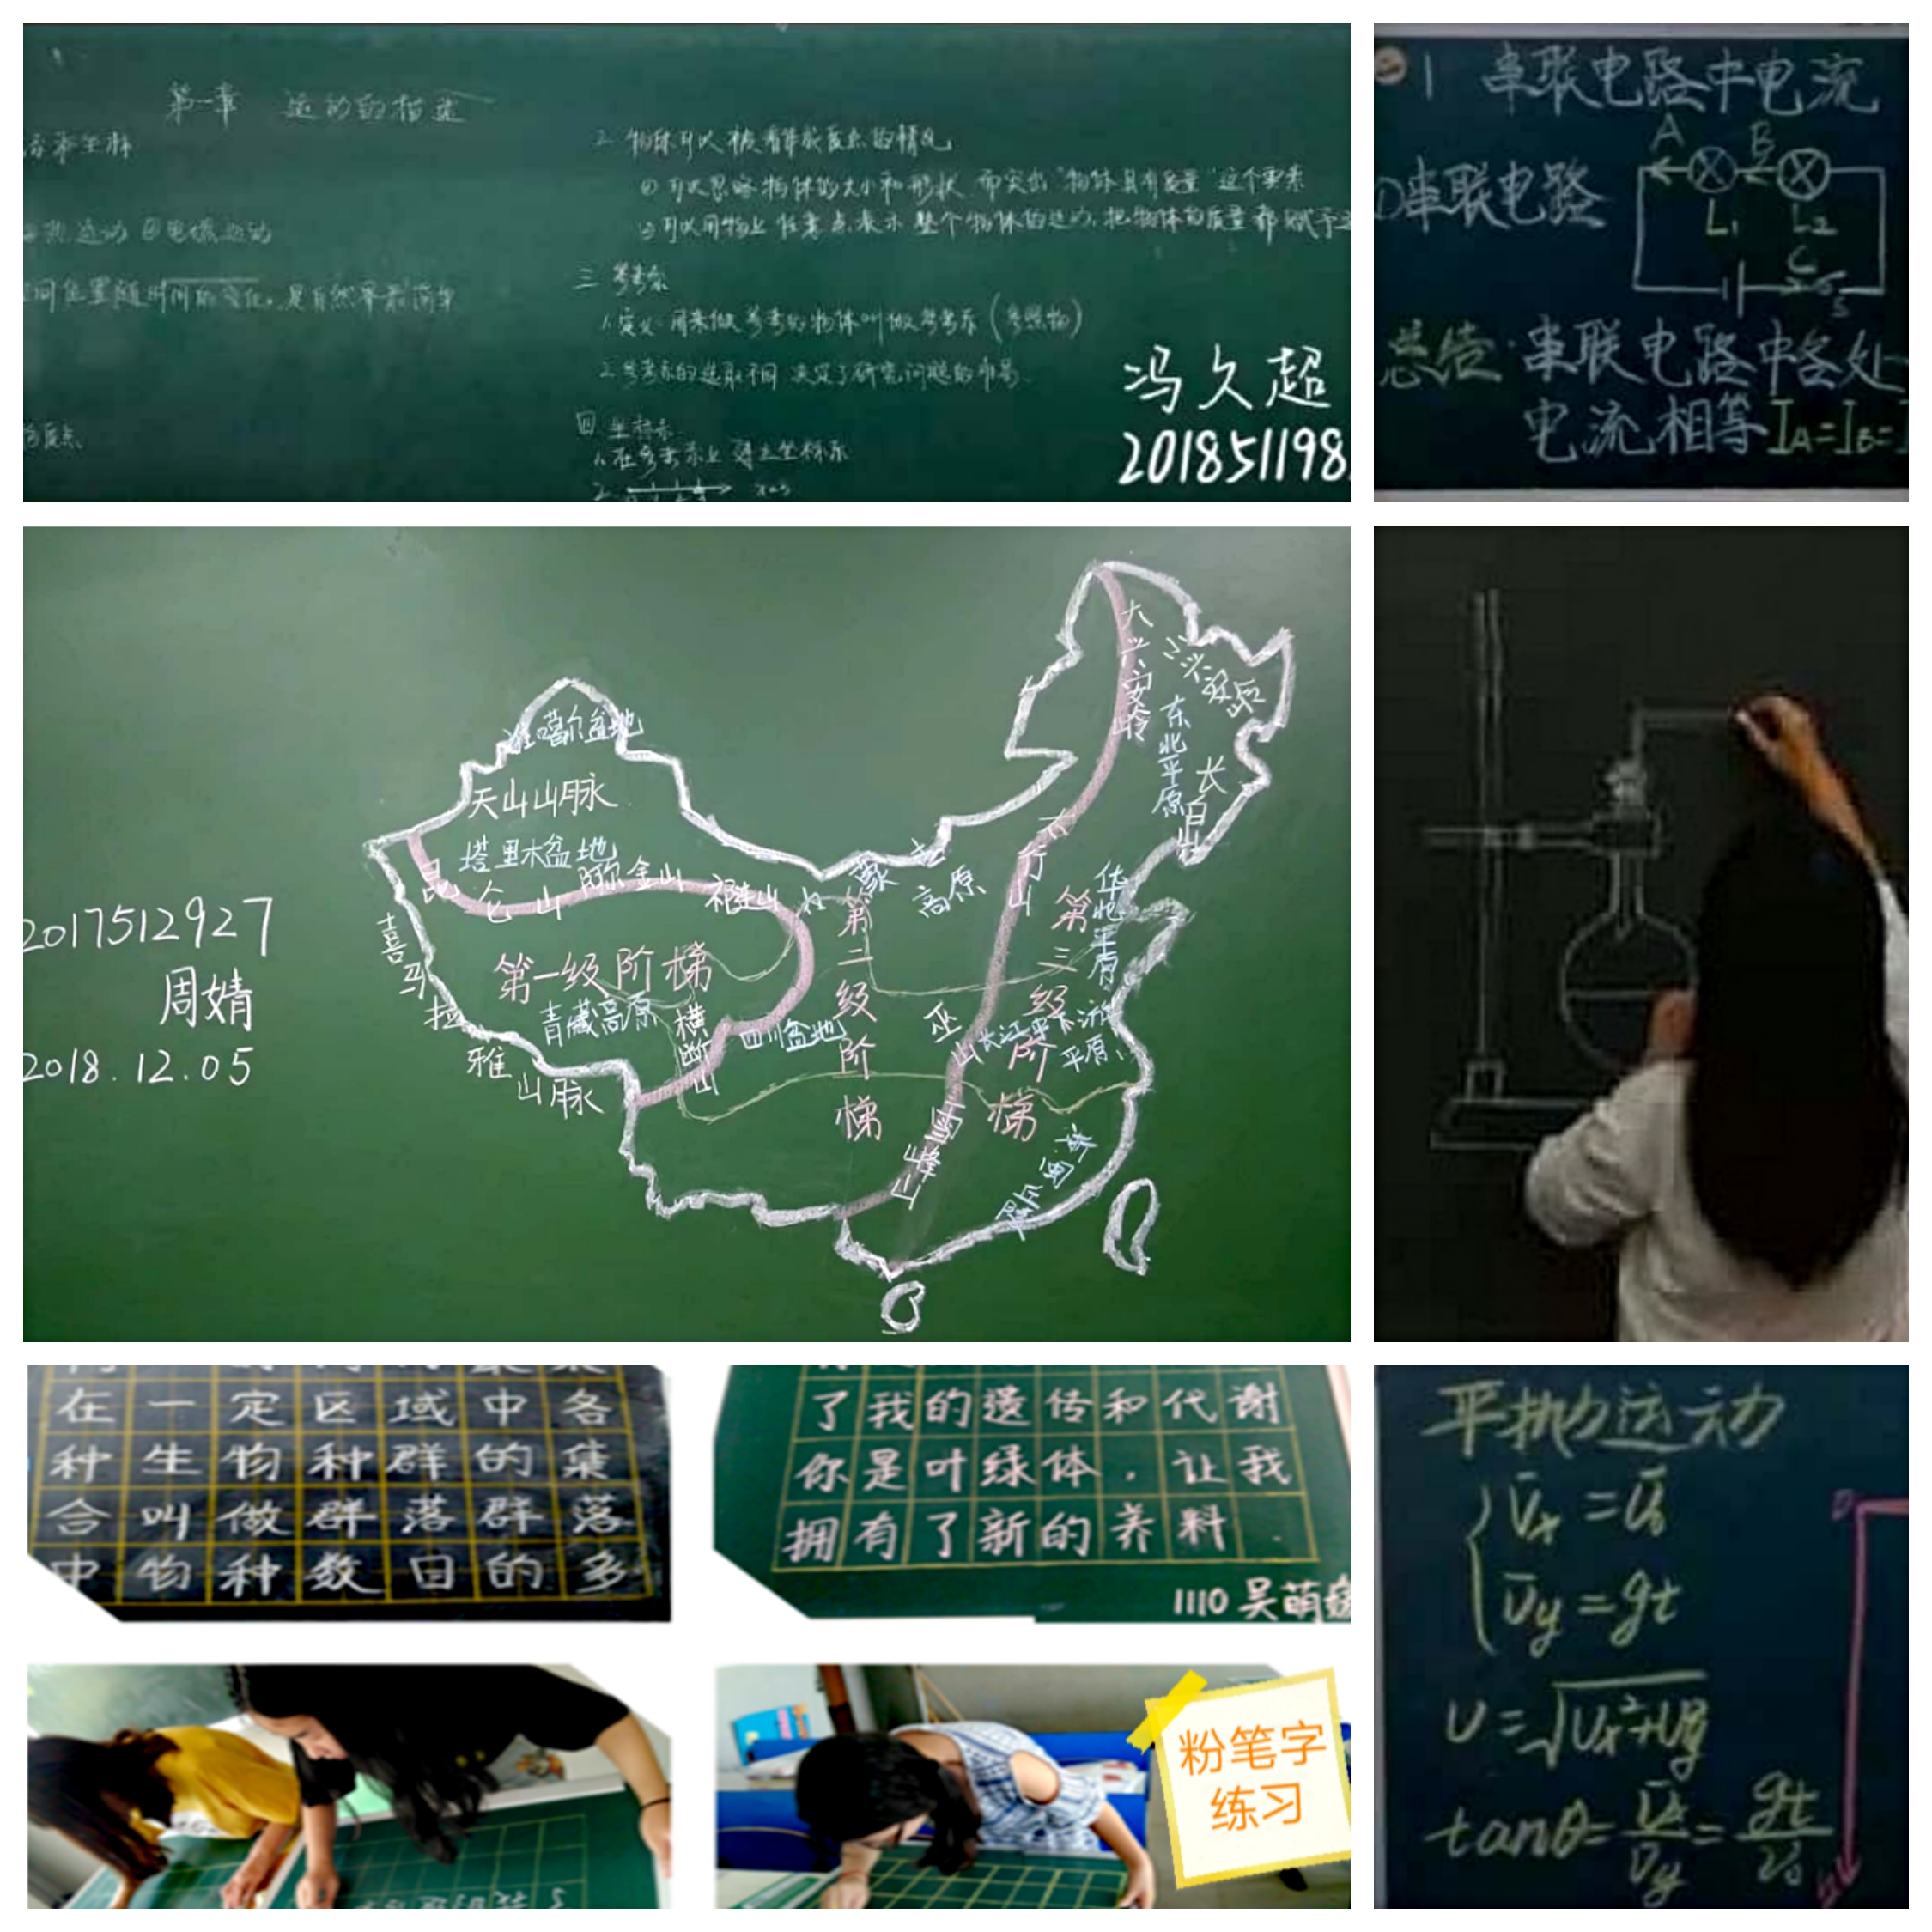 第一章 运动的描述
和坐标
热运动 ④电磁运动
间位置随时间的变化。是自然界最简单
2. 物体可以被看作质点的情况
① 可以忽略物体的大小和形状 而突出"物体具有质量"这个要素
② 可以用物上任意点表示整个物体的运动,把物体的质量都赋予
三 参考系
1. 定义:用来做参考的物体叫做参考系(参照物)
2. 参考系的选取不同 决定了研究问题的
四 坐标系
1. 在参考系上 建立坐标系
2.
冯久超
201851198
1 串联电路中电流
A B
①串联电路
L1 L2
C
S
总结:串联电路中各处
电流相等 IA=IB=
大兴安岭
小兴安
东北平原
长白山
噶尔盆地
天山山脉
塔里木盆地
昆仑山
阿尔金山
祁连山
内蒙古高原
太行山
华北平原
喜马拉雅山脉
第一级阶梯
青藏高原
横断山
四川盆地
第二级阶梯
巫山
第三级阶梯
长江中下游平原
2017512927
周婧
2018.12.05
在一定区域中各
种生物种群的集
合叫做群落群落
中物种数目的多
了我的遗传和代谢
你是叶绿体,让我
拥有了新的养料.
1110 吴萌
粉笔字
练习
平抛运动
Vx=V0
Vy=gt
V=√Vx²+Vy²
tanθ=Vx/Vy=gt/V0